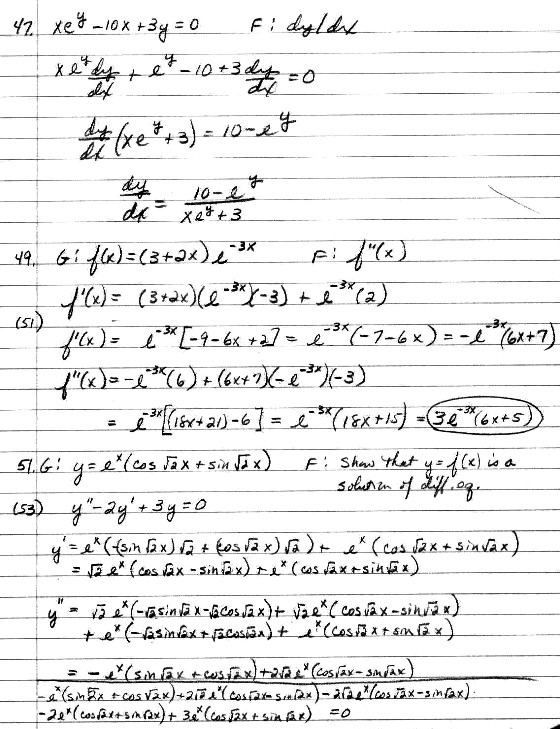 47. xe^y - 10x + 3y = 0 F: dy/dx
xe^y dy/dx + e^y - 10 + 3 dy/dx = 0
dy/dx (xe^y + 3) = 10 - e^y
dy/dx = (10 - e^y)/(xe^y + 3)
49. G: f(x) = (3+2x) e^-3x F: f"(x)
f'(x) = (3+2x)(e^-3x)(-3) + e^-3x (2)
(51)
f'(x) = e^-3x [-9-6x+2] = e^-3x (-7-6x) = -e^-3x (6x+7)
f"(x) = -e^-3x (6) + (6x+7)(-e^-3x)(-3)
= e^-3x [(18x+21)-6] = e^-3x (18x+15) = 3e^-3x (6x+5)
51. G: y = e^x (cos √2x + sin √2x) F: Show that y = f(x) is a
solution of diff. eq.
(53) y" - 2y' + 3y = 0
y' = e^x (-(sin √2x) √2 + (cos √2x) √2) + e^x (cos √2x + sin √2x)
= √2 e^x (cos √2x - sin √2x) + e^x (cos √2x + sin √2x)
y" = √2 e^x (-√2 sin √2x - √2 cos √2x) + √2 e^x (cos √2x - sin √2x)
+ e^x (-√2 sin √2x + √2 cos √2x) + e^x (cos √2x + sin √2x)
= -e^x (sin √2x + cos √2x) + 2√2 e^x (cos √2x - sin √2x)
-e^x (sin √2x + cos √2x) + 2√2 e^x (cos √2x - sin √2x) - 2√2 e^x (cos √2x - sin √2x)
-2e^x (cos √2x + sin √2x) + 3e^x (cos √2x + sin √2x) = 0